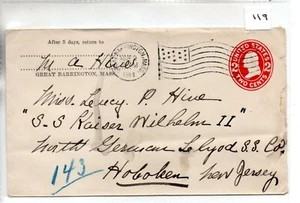 119
After 5 days, return to
M A Hines
GREAT BARRINGTON, MASS.
UNITED STATES
TWO CENTS
Miss. Leucy. P. Hine
"S. S Kaiser Wilhelm II"
North German Lloyd S.S. Co.
143
Hoboken New Jersey